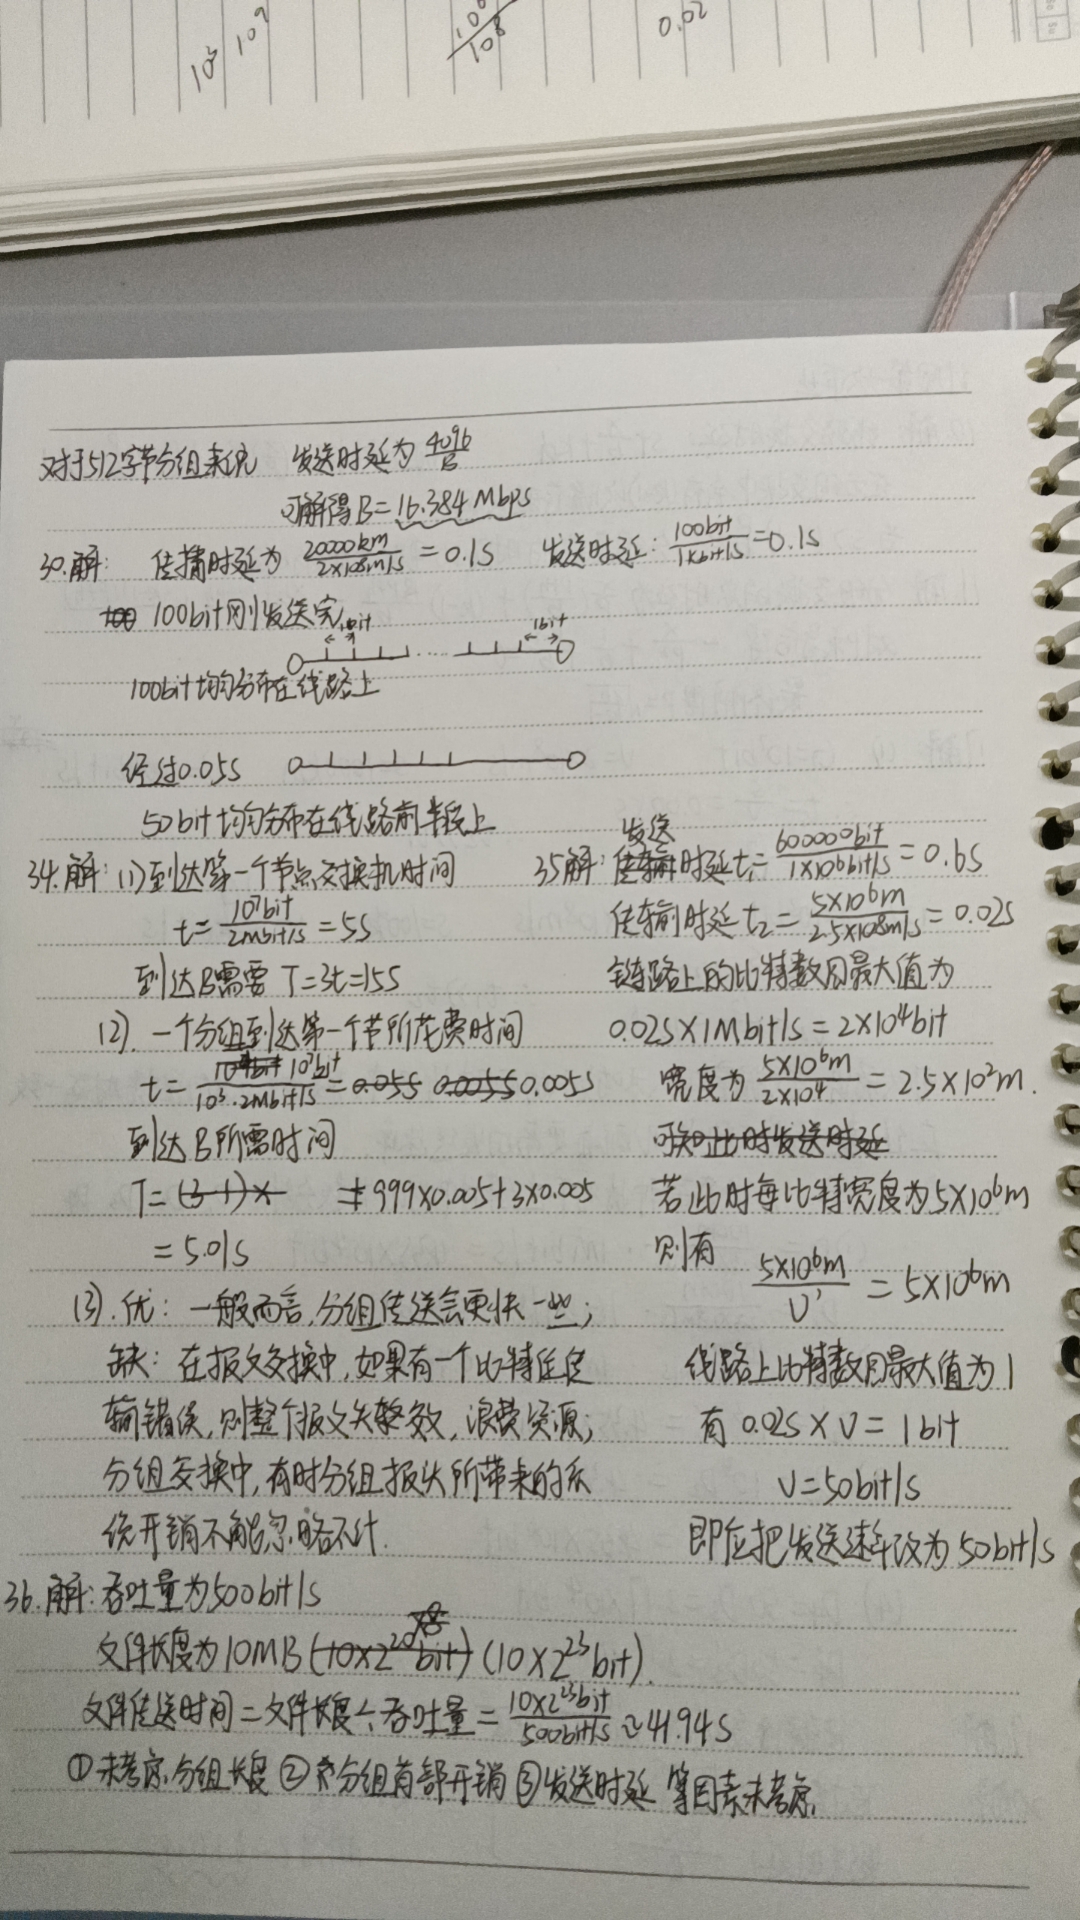 10³ 10⁷
10⁸
0.02
对于512字节分组来说 发送时延为 4096/B
可解得B=16.384Mbps
30.解: 传播时延为 20000km/2×10⁸m/s = 0.1s 发送时延: 100bit/1kbit/s =0.1s
100bit刚发送完
1bit 1bit
100bit均匀分布在线路上
经过0.05s
50bit均匀分布在线路前半段上
34.解: (1)到达第一个节点交换机时间
t= 10⁷bit/2Mbit/s =5s
到达B需要 T=3t=15s
(2). 一个分组到达第一个节所花费时间
t= 10⁷bit/10³·2Mbit/s = 0.005s
到达B所需时间
T= 999×0.005+3×0.005
=5.01s
(3). 优: 一般而言,分组传送会更快一些;
缺: 在报文交换中,如果有一个比特传
输错误,则整个报文失效,浪费资源;
分组交换中,有时分组报头所带来的系
统开销不能忽略不计.
35解: 发送时延t₁= 600000bit/1×10⁶bit/s =0.6s
传输时延 t₂= 5×10⁶m/2.5×10⁸m/s =0.02s
链路上的比特数目最大值为
0.02s×1Mbit/s=2×10⁴bit
宽度为 5×10⁶m/2×10⁴ =2.5×10²m.
可知此时发送时延
若此时每比特宽度为5×10⁶m
则有 5×10⁶m/υ' =5×10⁶m
线路上比特数目最大值为1
有 0.02s×υ=1bit
υ=50bit/s
即应把发送速率改为50bit/s
36.解: 吞吐量为500bit/s
文件长度为10MB (10×2²⁰×8bit) (10×2²³bit).
文件传送时间=文件长度÷吞吐量= 10×2²³bit/500bit/s ≈41.94s
①未考虑分组长度 ②分组首部开销 ③发送时延 等因素未考虑